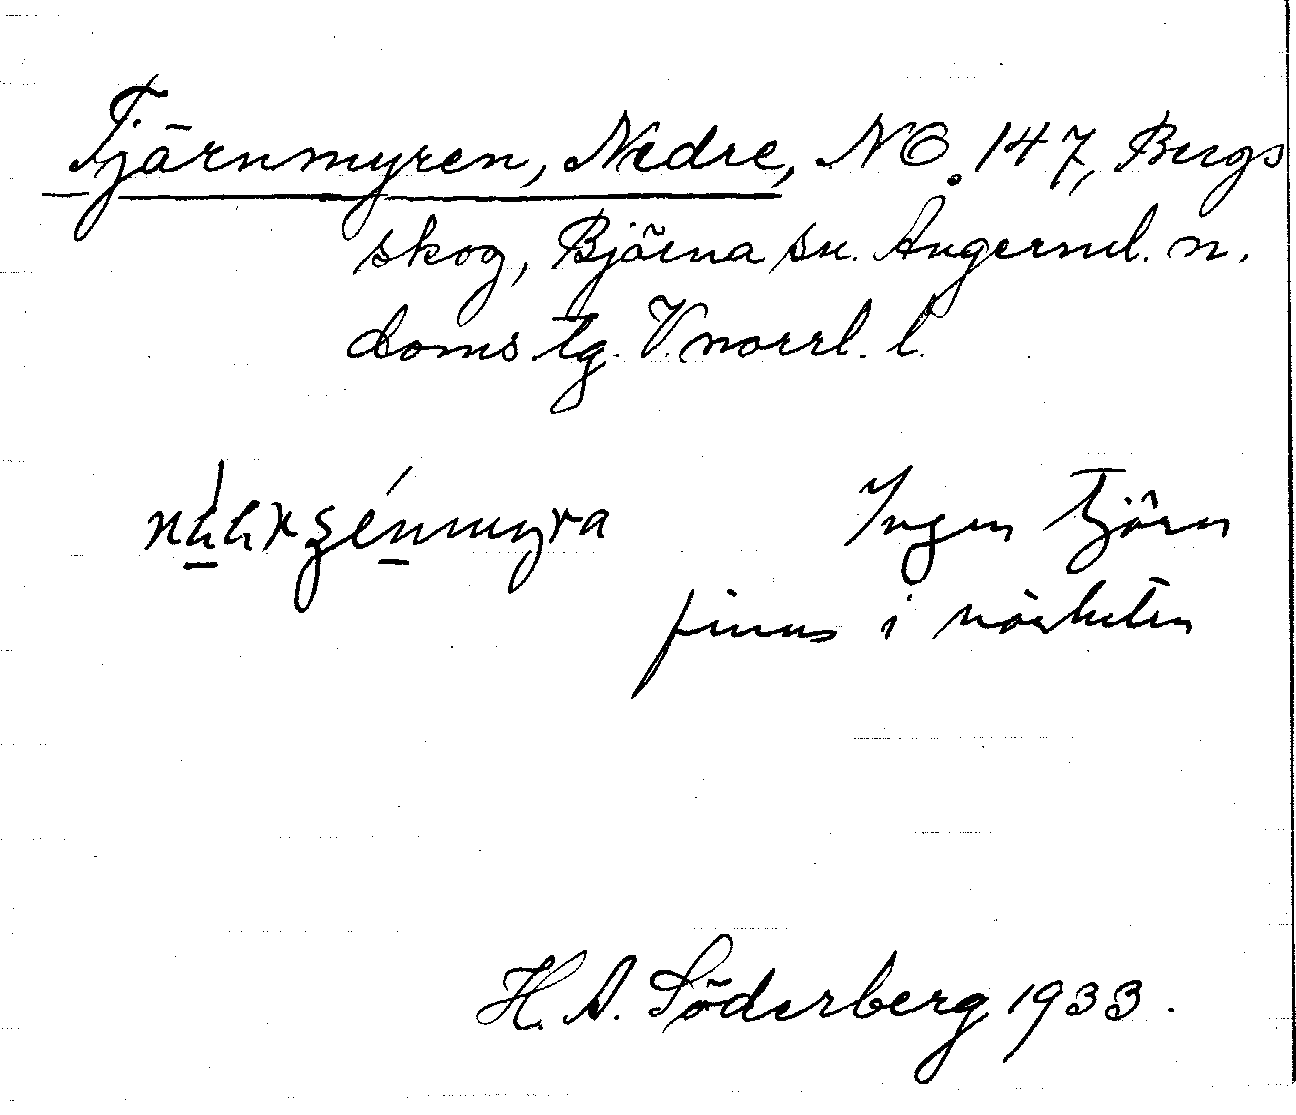 Tjärnmyren, Nedre, NO. 147, Bergs
skog, Björna sn. Ångerml. n.
doms lg. V. norrl. l.
Ingen tjärn
finns i närheten
H. A. Söderberg 1933.